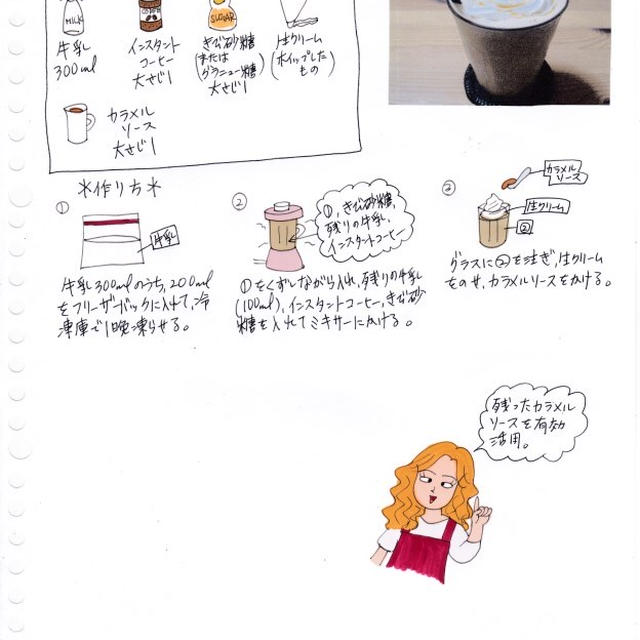 MILK
COFFEE
SUGAR
牛乳
300ml
インスタント
コーヒー
大さじ1
きび砂糖
(または
グラニュー糖)
大さじ1
生クリーム
(ホイップした
もの)
カラメル
ソース
大さじ1
*作り方*
①
牛乳
牛乳300mlのうち、200ml
をフリーザーバックに入れて、冷
凍庫で1晩凍らせる。
②
①、きび砂糖、
残りの牛乳、
インスタントコーヒー
①をくずしながら入れ、残りの牛乳
(100ml)、インスタントコーヒー、きび砂
糖を入れてミキサーにかける。
③
カラメル
ソース
生クリーム
②
グラスに②を注ぎ、生クリーム
をのせ、カラメルソースをかける。
残ったカラメル
ソースを有効
活用。